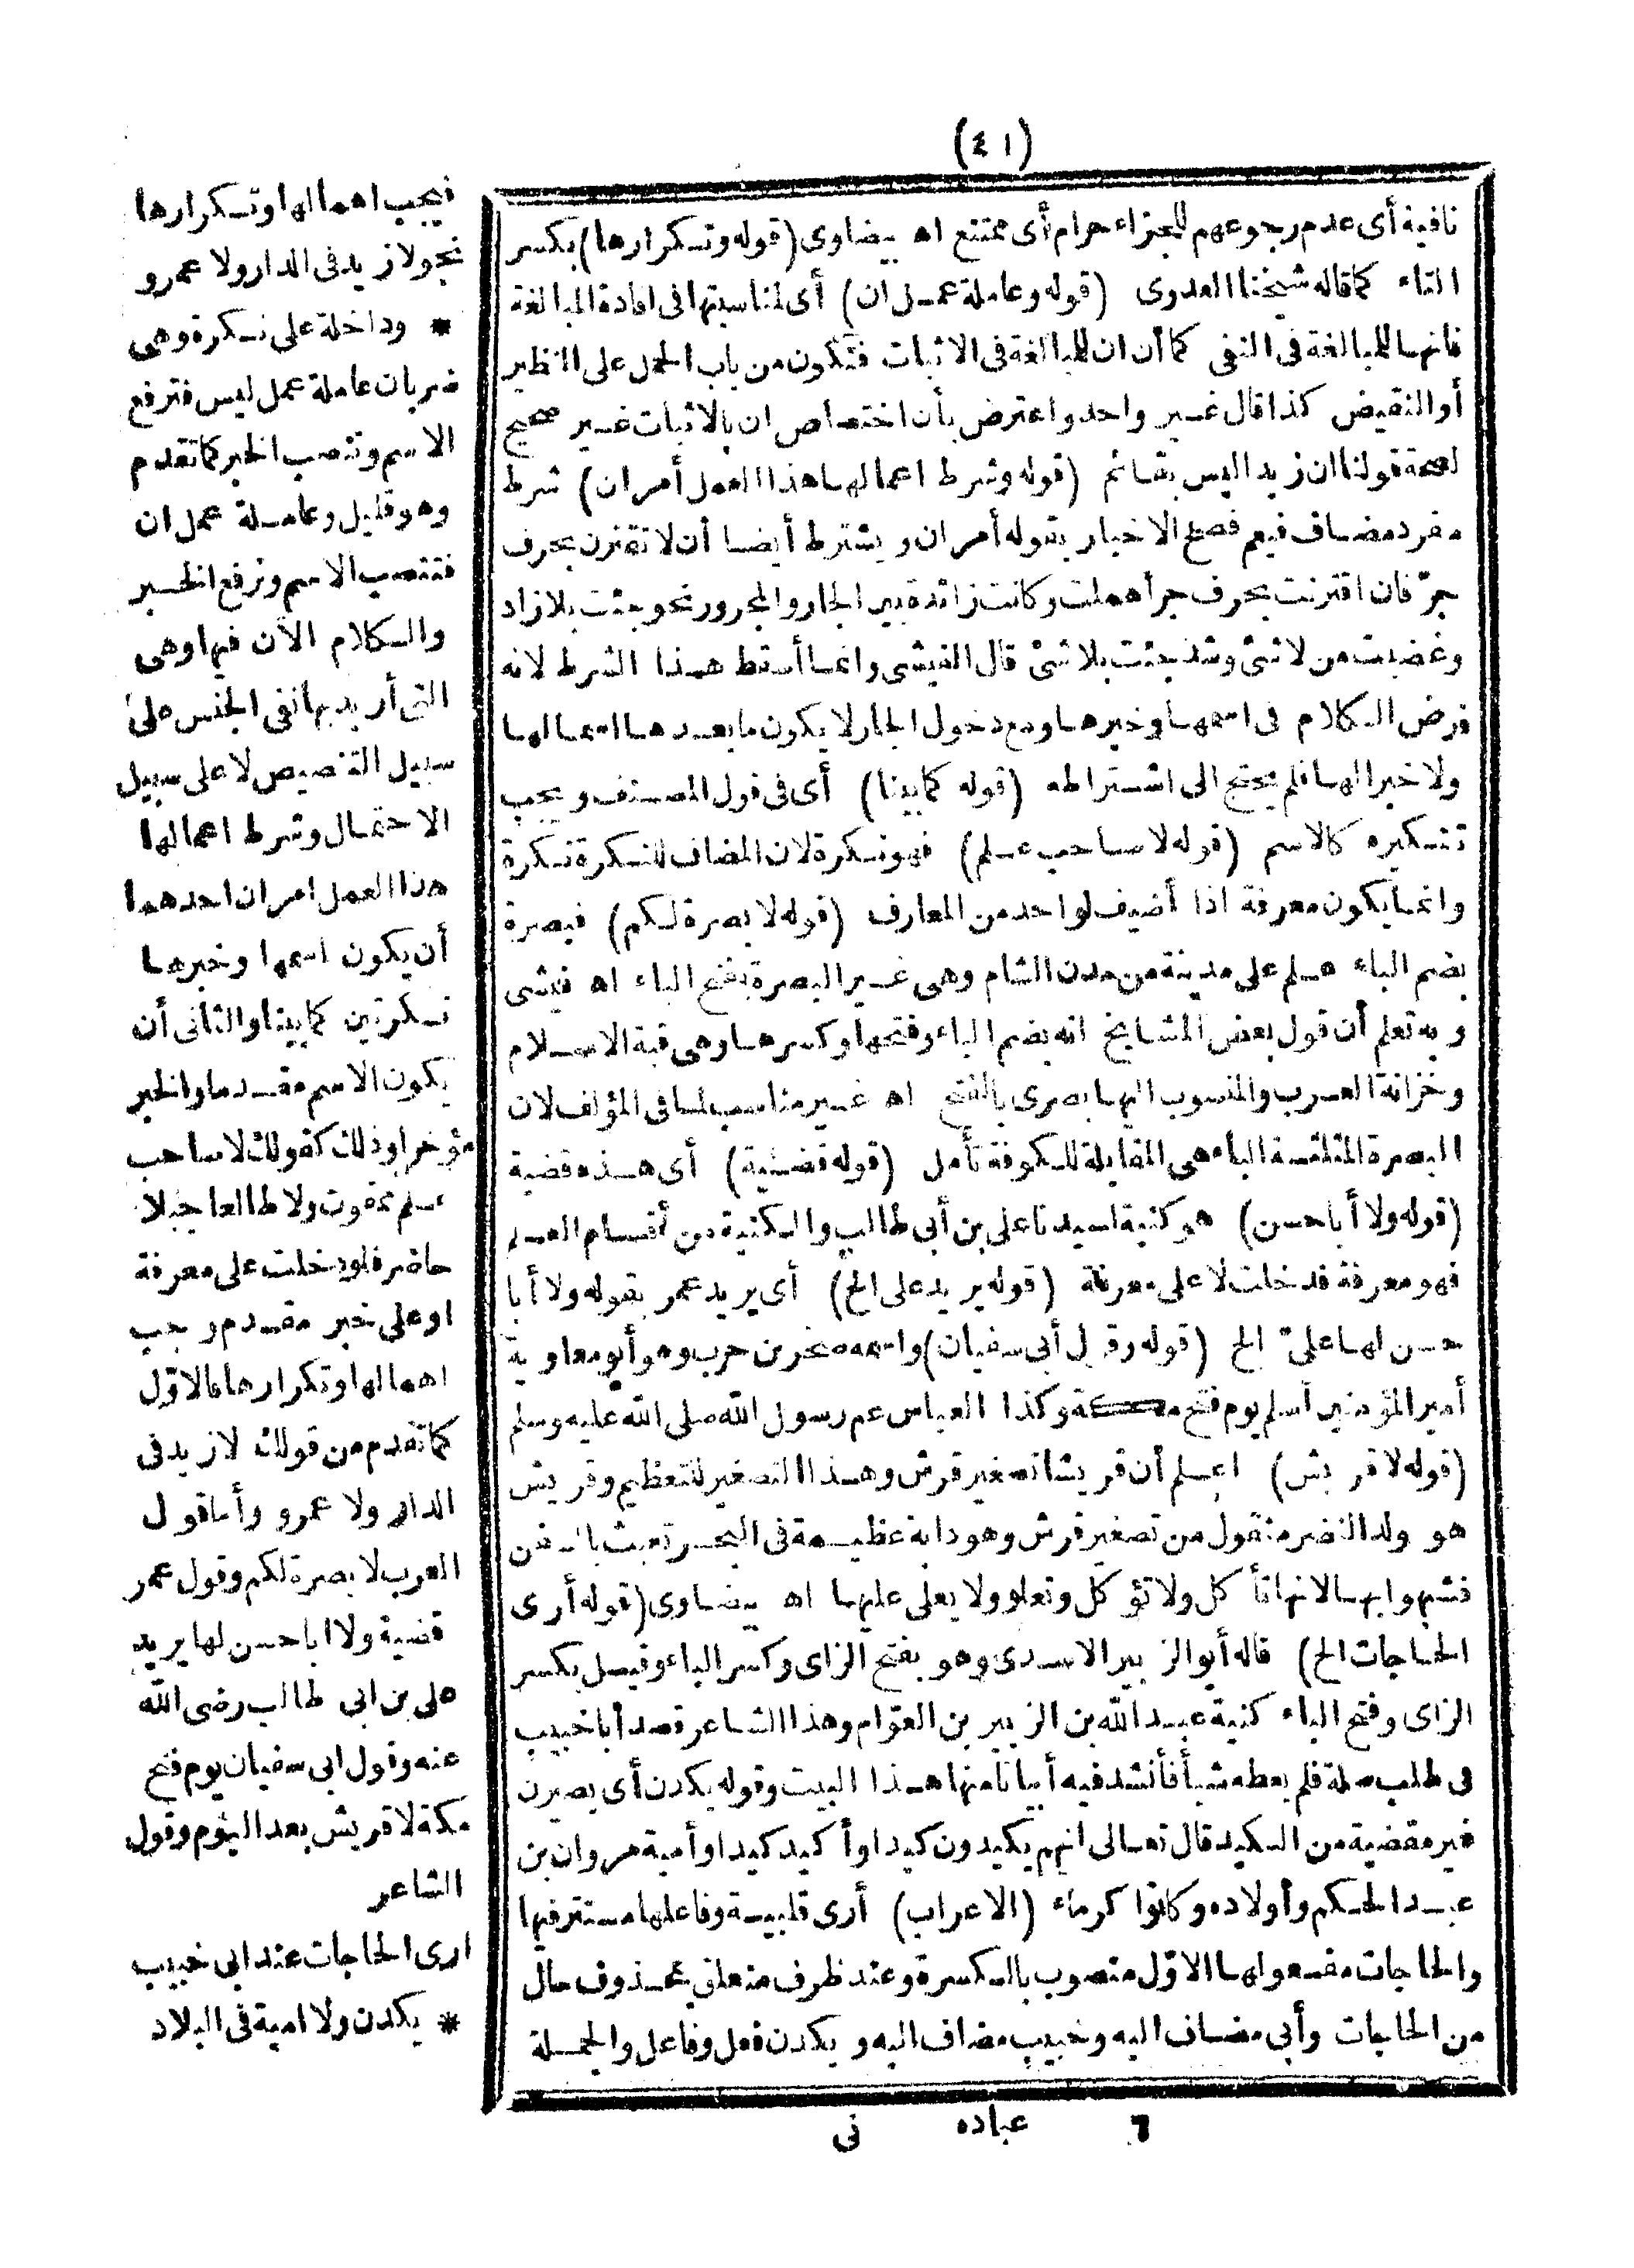 (٤١)
نافية أى عدم رجوعهم للجزاء حرام أى ممتنع اه بيضاوى (قوله وتكرارها) بكسر
التاء كما قاله شيخنا العدوى (قوله وعاملة عمل ان) أى لمناسبتها فى افادة المبالغة
فانها للمبالغة فى النفى كما أن ان للمبالغة فى الاثبات فتكون من باب الحمل على النظير
أو النقيض كذا قال غير واحد واعترض بأن اختصاص ان بالاثبات غير صحيح
لصحة قولنا ان زيدا ليس بقائم (قوله وشرط اعمالها هذا العمل أمران) شرط
مفرد مضاف فيعم فصح الاخبار بقوله أمران ويشترط أيضا أن لا تقترن بحرف
جرّ فان اقترنت بحرف جر أهملت وكانت زائدة بين الجار والمجرور نحو جئت بلا زاد
وغضبت من لا شئ وشذ جئت بلا شئ قال الفيشى وانما أسقط هذا الشرط لانه
فرض الكلام فى اسمها وخبرها ومع دخول الجار لا يكون ما بعدها اسما لها
ولا خبرا لها فلم يحتج الى اشتراطه (قوله كما بينا) أى فى قول المصنف ويجب
تنكيره كالاسم (قوله لا صاحب علم) فهو نكرة لان المضاف للنكرة نكرة
وانما يكون معرفة اذا أضيف لواحد من المعارف (قوله لا بصرة لكم) فبصرة
بضم الباء علم على مدينة من مدن الشام وهى غير البصرة بفتح الباء اه فيشى
وبه تعلم أن قول بعض المشايخ انه بضم الباء وفتحها وكسرها وهى قبة الاسلام
وخزانة العرب والمنسوب اليها بصرى بالفتح اه غير مناسب لما فى المؤلف لان
البصرة المثلثة الباء هى المقابلة للكوفة تأمل (قوله قضية) أى هذه قضية
(قوله ولا أبا حسن) هو كنية لسيدنا على بن أبى طالب والكنية من أقسام العلم
فهو معرفة فدخلت لا على معرفة (قوله يريد على الخ) أى يريد عمر بقوله ولا أبا
حسن لها علىّ الخ (قوله وقول أبى سفيان) واسمه صخر بن حرب وهو أبو معاوية
أمير المؤمنين أسلم يوم فتح مكة وكذا العباس عم رسول الله صلى الله عليه وسلم
(قوله لا قريش) اعلم أن قريشا تصغير قرش وهذا التصغير للتعظيم وقريش
هو ولد النضر منقول من تصغير قرش وهو دابة عظيمة فى البحر تعبث بالسفن
فشبهوا بها لانها تأكل ولا تؤكل وتعلو ولا يعلى عليها اه بيضاوى (قوله أرى
الحاجات الخ) قاله أبو الزبير الاسدى وهو بفتح الزاى وكسر الباء وقيل بكسر
الزاى وفتح الباء كنية عبد الله بن الزبير بن العوّام وهذا الشاعر قصد أبا خبيب
فى طلب صلة فلم يعطه شيأ فأنشد فيه أبياتا منها هذا البيت وقوله يكدن أى يصيرن
غير مقضية من الكيد قال تعالى انهم يكيدون كيدا وأكيد كيدا وأمية مروان بن
عبد الحكم وأولاده وكانوا كرماء (الاعراب) أرى قلبية وفاعلها مستتر فيها
والحاجات مفعولها الاوّل منصوب بالكسرة وعند ظرف متعلق بمحذوف حال
من الحاجات وأبى مضاف اليه وخبيب مضاف اليه ويكدن فعل وفاعل والجملة
٦ عباده نى
فيجب اهمالها وتكرارها
نحو لا زيد فى الدار ولا عمرو
* وداخلة على نكرة وهى
ضربان عاملة عمل ليس فترفع
الاسم وتنصب الخبر كما تقدم
وهو قليل وعاملة عمل ان
فتنصب الاسم وترفع الخبر
والكلام الآن فيها وهى
التى أريد بها نفى الجنس على
سبيل التنصيص لا على سبيل
الاحتمال وشرط اعمالها
هذا العمل امران احدهما
أن يكون اسمها وخبرها
نكرتين كما بينا والثانى أن
يكون الاسم مقدما والخبر
مؤخرا وذلك كقولك لا صاحب
علم ممقوت ولا طالعا جبلا
حاضر فلو دخلت على معرفة
او على خبر مقدم وجب
اهمالها وتكرارها فالاوّل
كما تقدم من قولك لا زيد فى
الدار ولا عمرو وأما قول
العرب لا بصرة لكم وقول عمر
قضية ولا ابا حسن لها يريد
على بن ابى طالب رضى الله
عنه وقول ابى سفيان يوم فتح
مكة لا قريش بعد اليوم وقول
الشاعر
ارى الحاجات عند ابى خبيب
* يكدن ولا امية فى البلاد